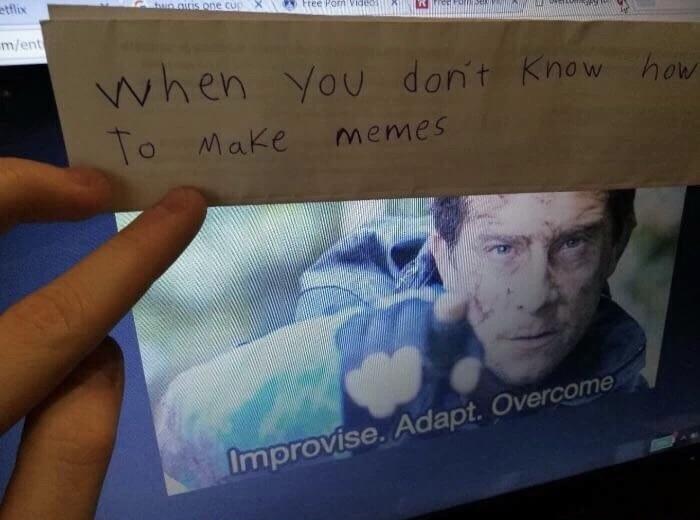 etflix
two girls one cup X
Free Porn Videos X
m/ent
When You don't Know how
To Make memes
Improvise. Adapt. Overcome